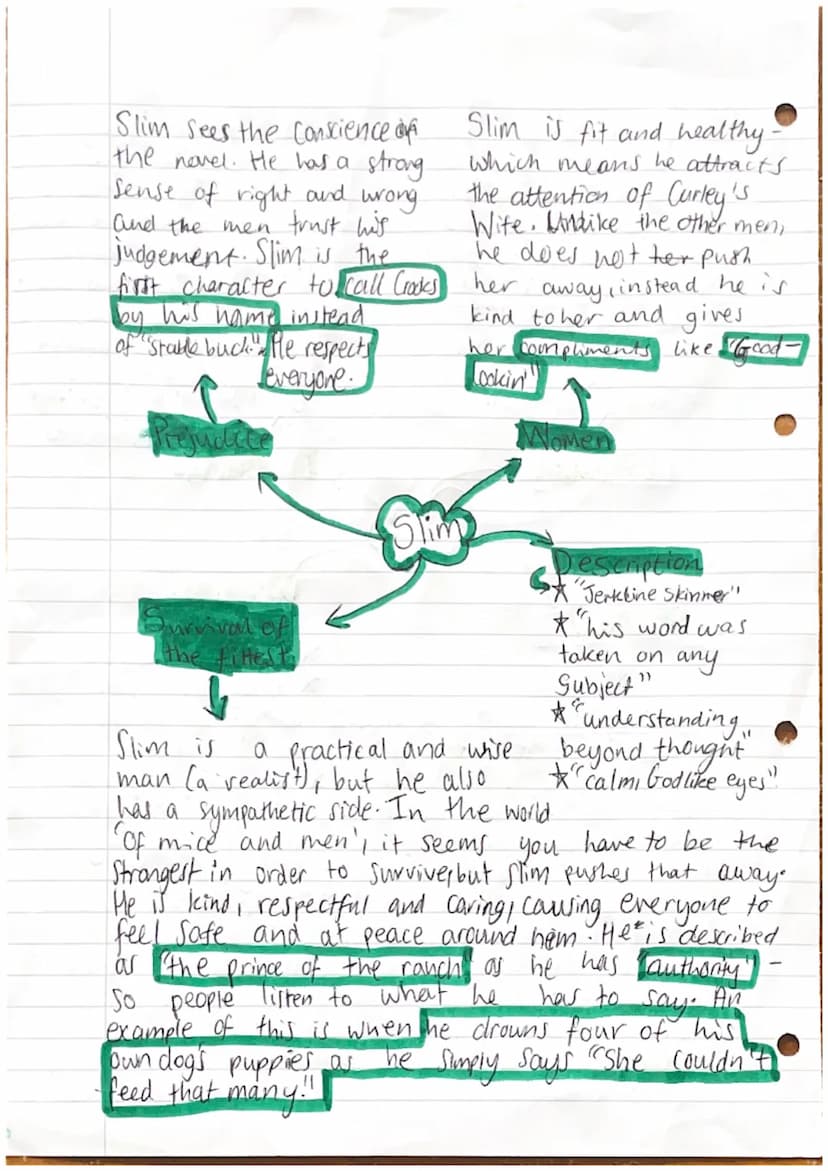 Slim sees the conscience of
the novel. He has a strong
sense of right and wrong
and the men trust his
judgement. Slim is the
first character to call Crooks
by his name instead
of "stable buck". He respects
everyone.
Prejudice
Slim is fit and healthy -
which means he attracts
the attention of Curley's
Wife. Unlike the other men,
he does not her push
her away, instead he is
kind to her and gives
her compliments like "Good-
lookin'"
Women
Slim
Description
★ "Jerkline skinner"
★ "his word was
taken on any
Subject"
★ "understanding
beyond thought"
★ "calm, Godlike eyes"
Survival of
the fittest
Slim is a practical and wise
man (a realist), but he also
has a sympathetic side. In the world
'Of mice and men', it seems you have to be the
strongest in order to survive, but slim pushes that away.
He is kind, respectful and caring, causing everyone to
feel safe and at peace around him. He is described
as "the prince of the ranch" as he has "authority" -
so people listen to what he has to say. An
example of this is when he drowns four of his
own dog's puppies as he simply says "She couldn't
feed that many."